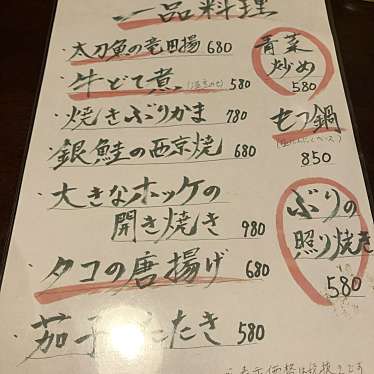 一品料理
・太刀魚の竜田揚 680
・牛どて煮。 580
・焼きぶりかま 780
・銀鮭の西京焼 680
・大きなホッケの
開き焼き 980
・タコの唐揚げ 680
・茄子 たたき 580
青菜
炒め
580
モツ鍋
850
ぶりの
照り焼き
580